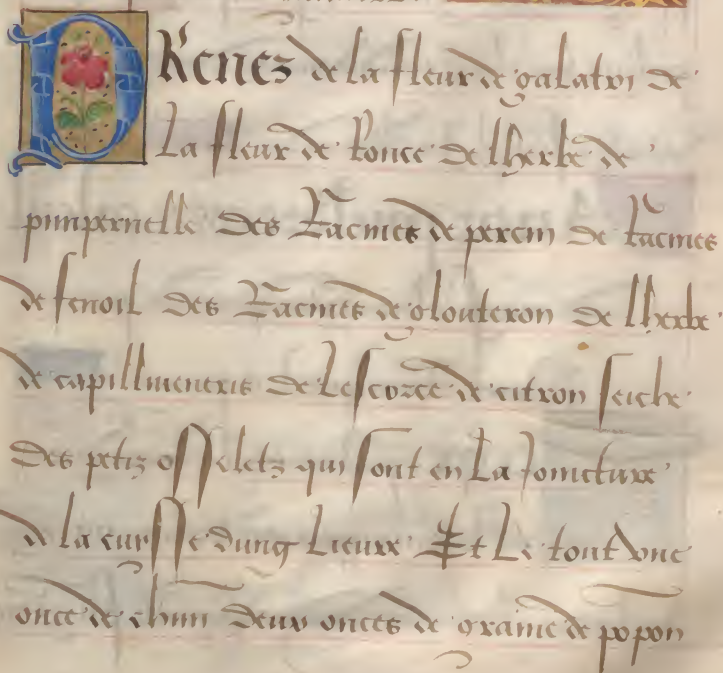 PRenez de la fleur de galatri de
La fleur de Ronce de lherbe de
pimpernelle des Racines de percin de Racines
de fenoil des Racines de glouteron de lherbe
de capilliveneris de Lescorce de citron seiche
des petiz osseletz qui sont en La Joincture
de la cuysse dung Lieure Et Le tout vne
once de chun deux onces de graine de popon